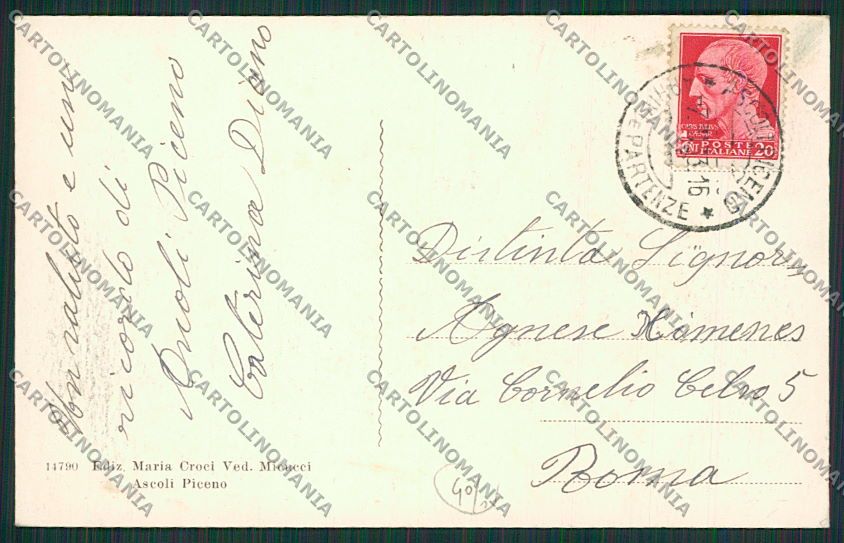 Un saluto e un
ricordo di
Ascoli Piceno
Caterina Diano
14790 Ediz. Maria Croci Ved. Micucci
Ascoli Piceno
POSTE
ITALIANE
CENT 20
E PARTENZE
16
Distinta Signora
Agnese Ximenes
Via Cornelio Celso 5
Roma
40/
CARTOLINOMANIA